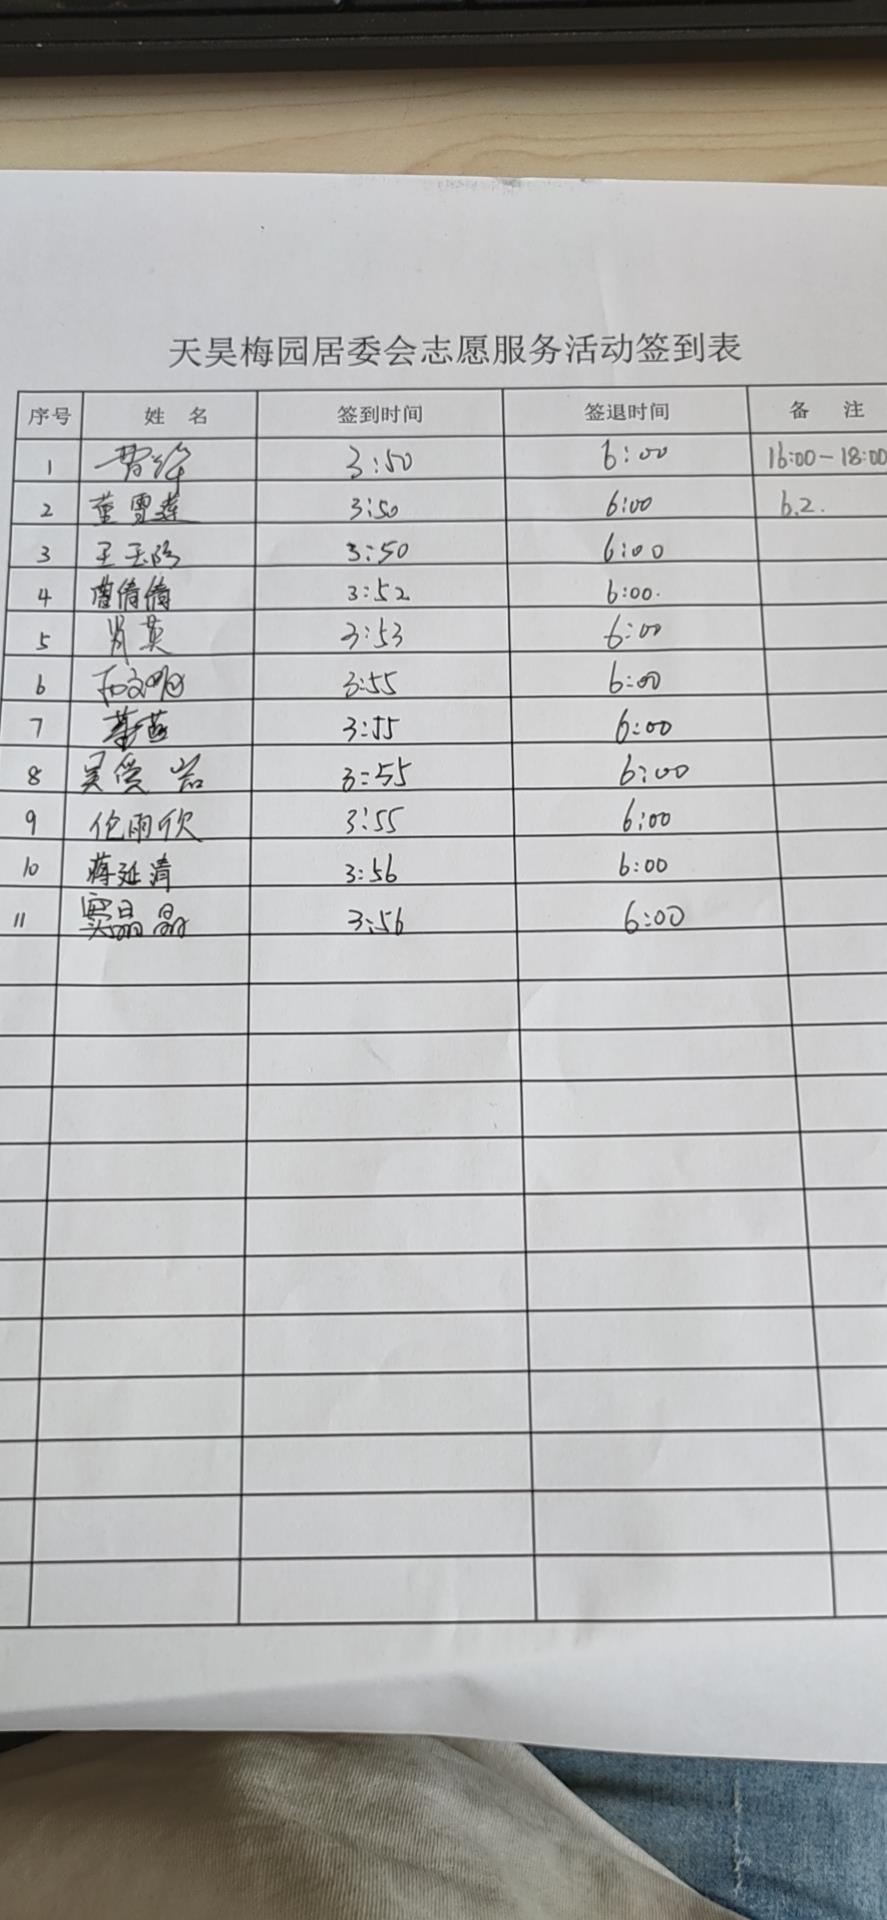 天昊梅园居委会志愿服务活动签到表
序号 姓 名 签到时间 签退时间 备 注
1 3:50 6:00 16:00-18:00
2 董雪莲 3:50 6:00 6.2.
3 王玉 3:50 6:00
4 曹倩倩 3:52 6:00.
5 肖英 3:53 6:00
6 3:55 6:00
7 3:55 6:00
8 吴俊岩 3:55 6:00
9 伦雨欣 3:55 6:00
10 蒋延清 3:56 6:00
11 窦晶晶 3:56 6:00